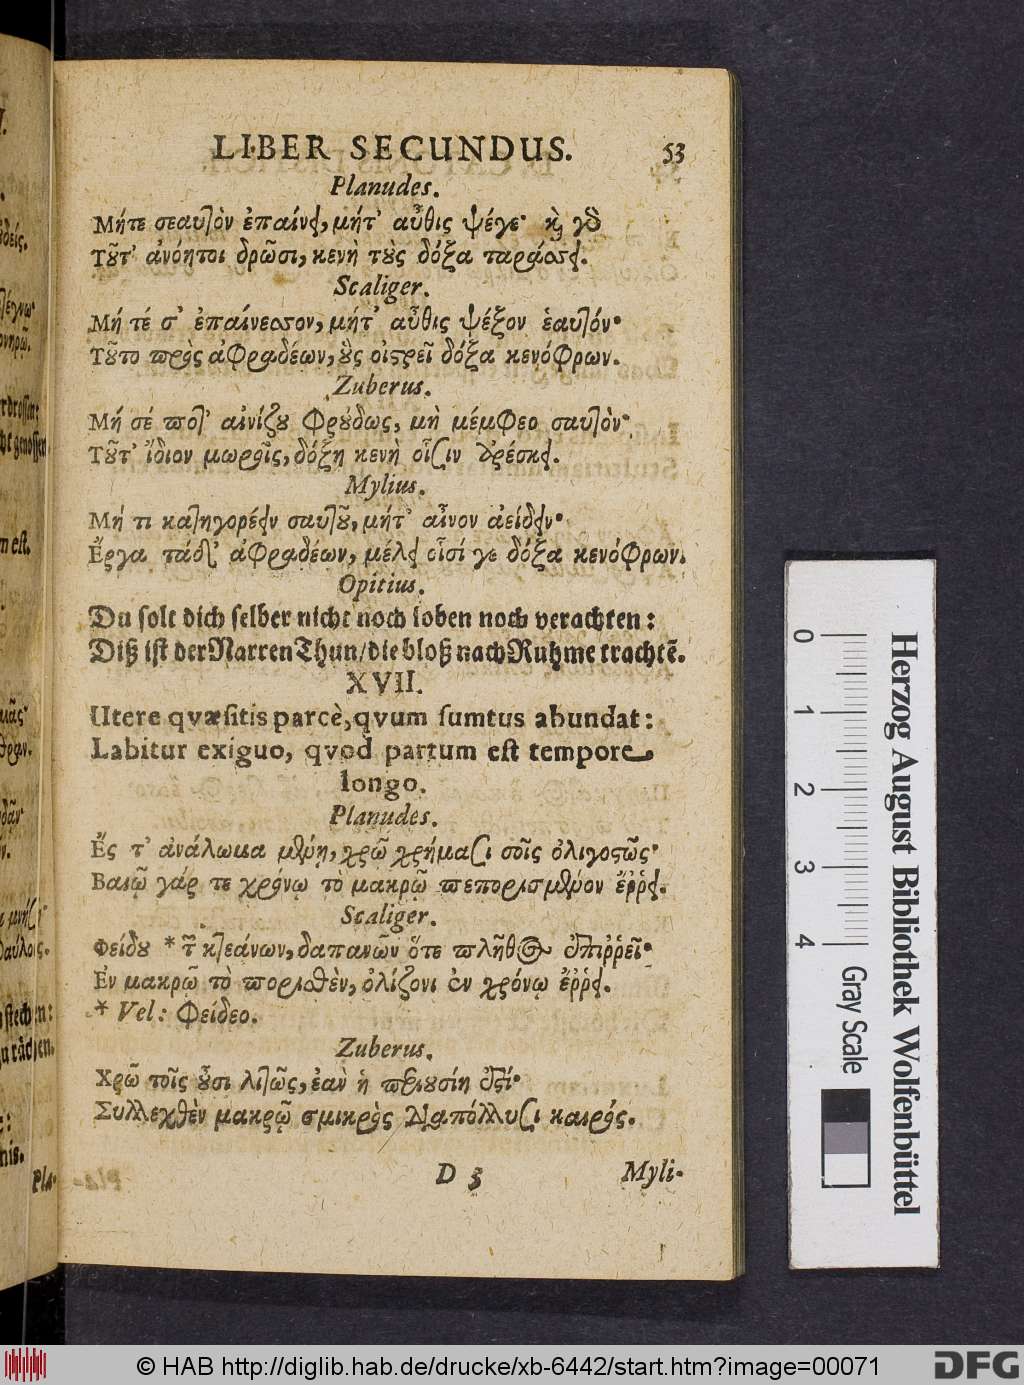 LIBER SECUNDUS. 53
Planudes.
Μήτε σεαυτὸν ἐπαίνει, μήτ' αὖθις ψέγε· καὶ γὸ
Τοῦτ' ἀνόητοι δρῶσι, κενὴ τοὺς δόξα ταράσσει.
Scaliger.
Μή τέ σ' ἐπαίνεσσον, μήτ' αὖθις ψέξον ἑαυτόν·
Τοῦτο πρὸς ἀφραδέων, οὓς οἰστρεῖ δόξα κενόφρων.
Zuberus.
Μή σέ ποτ' αἰνίζου φρούδως, μὴ μέμφεο σαυτὸν·
Τοῦτ' ἴδιον μωροῖς, δόξη κενὴ οἷσιν ἀρέσκει.
Mylius.
Μή τι κατηγορέειν σαυτοῦ, μήτ' αἶνον ἀείδειν·
Ἔργα τάδ' ἀφραδέων, μέλει οἷσί γε δόξα κενόφρων.
Opitius.
Du solt dich selber nicht noch loben noch verachten:
Diß ist der Narren Thun/die bloß nach Ruhme trachtē.
XVII.
Utere qvæsitis parcè, qvum sumtus abundat:
Labitur exiguo, qvod partum est tempore
longo.
Planudes.
Ἔς τ' ἀνάλωμα μένῃ, χρῶ χρήμασι σοῖς ὀλιγοστῶς·
Βαιῷ γάρ τε χρόνῳ τὸ μακρῷ πεπορισμένον ἔῤῥει.
Scaliger.
Φείδου * τῶν κτεάνων, δαπανῶν ὅτε πλῆθος ἐπιῤῥεῖ·
Ἐν μακρῶ τὸ πορισθὲν, ὀλίζονι ἐν χρόνῳ ἔῤῥει.
* Vel: Φείδεο.
Zuberus.
Χρῶ τοῖς οὖσι λιτῶς, ἐὰν ἡ περιουσίη ἐστί·
Συλλεχθὲν μακρῷ σμικρὸς διαπόλλυσι καιρός.
D 3 Myli-
Pla-
0 1 2 3 4
Gray Scale
Herzog August Bibliothek Wolfenbüttel
© HAB http://diglib.hab.de/drucke/xb-6442/start.htm?image=00071
DFG